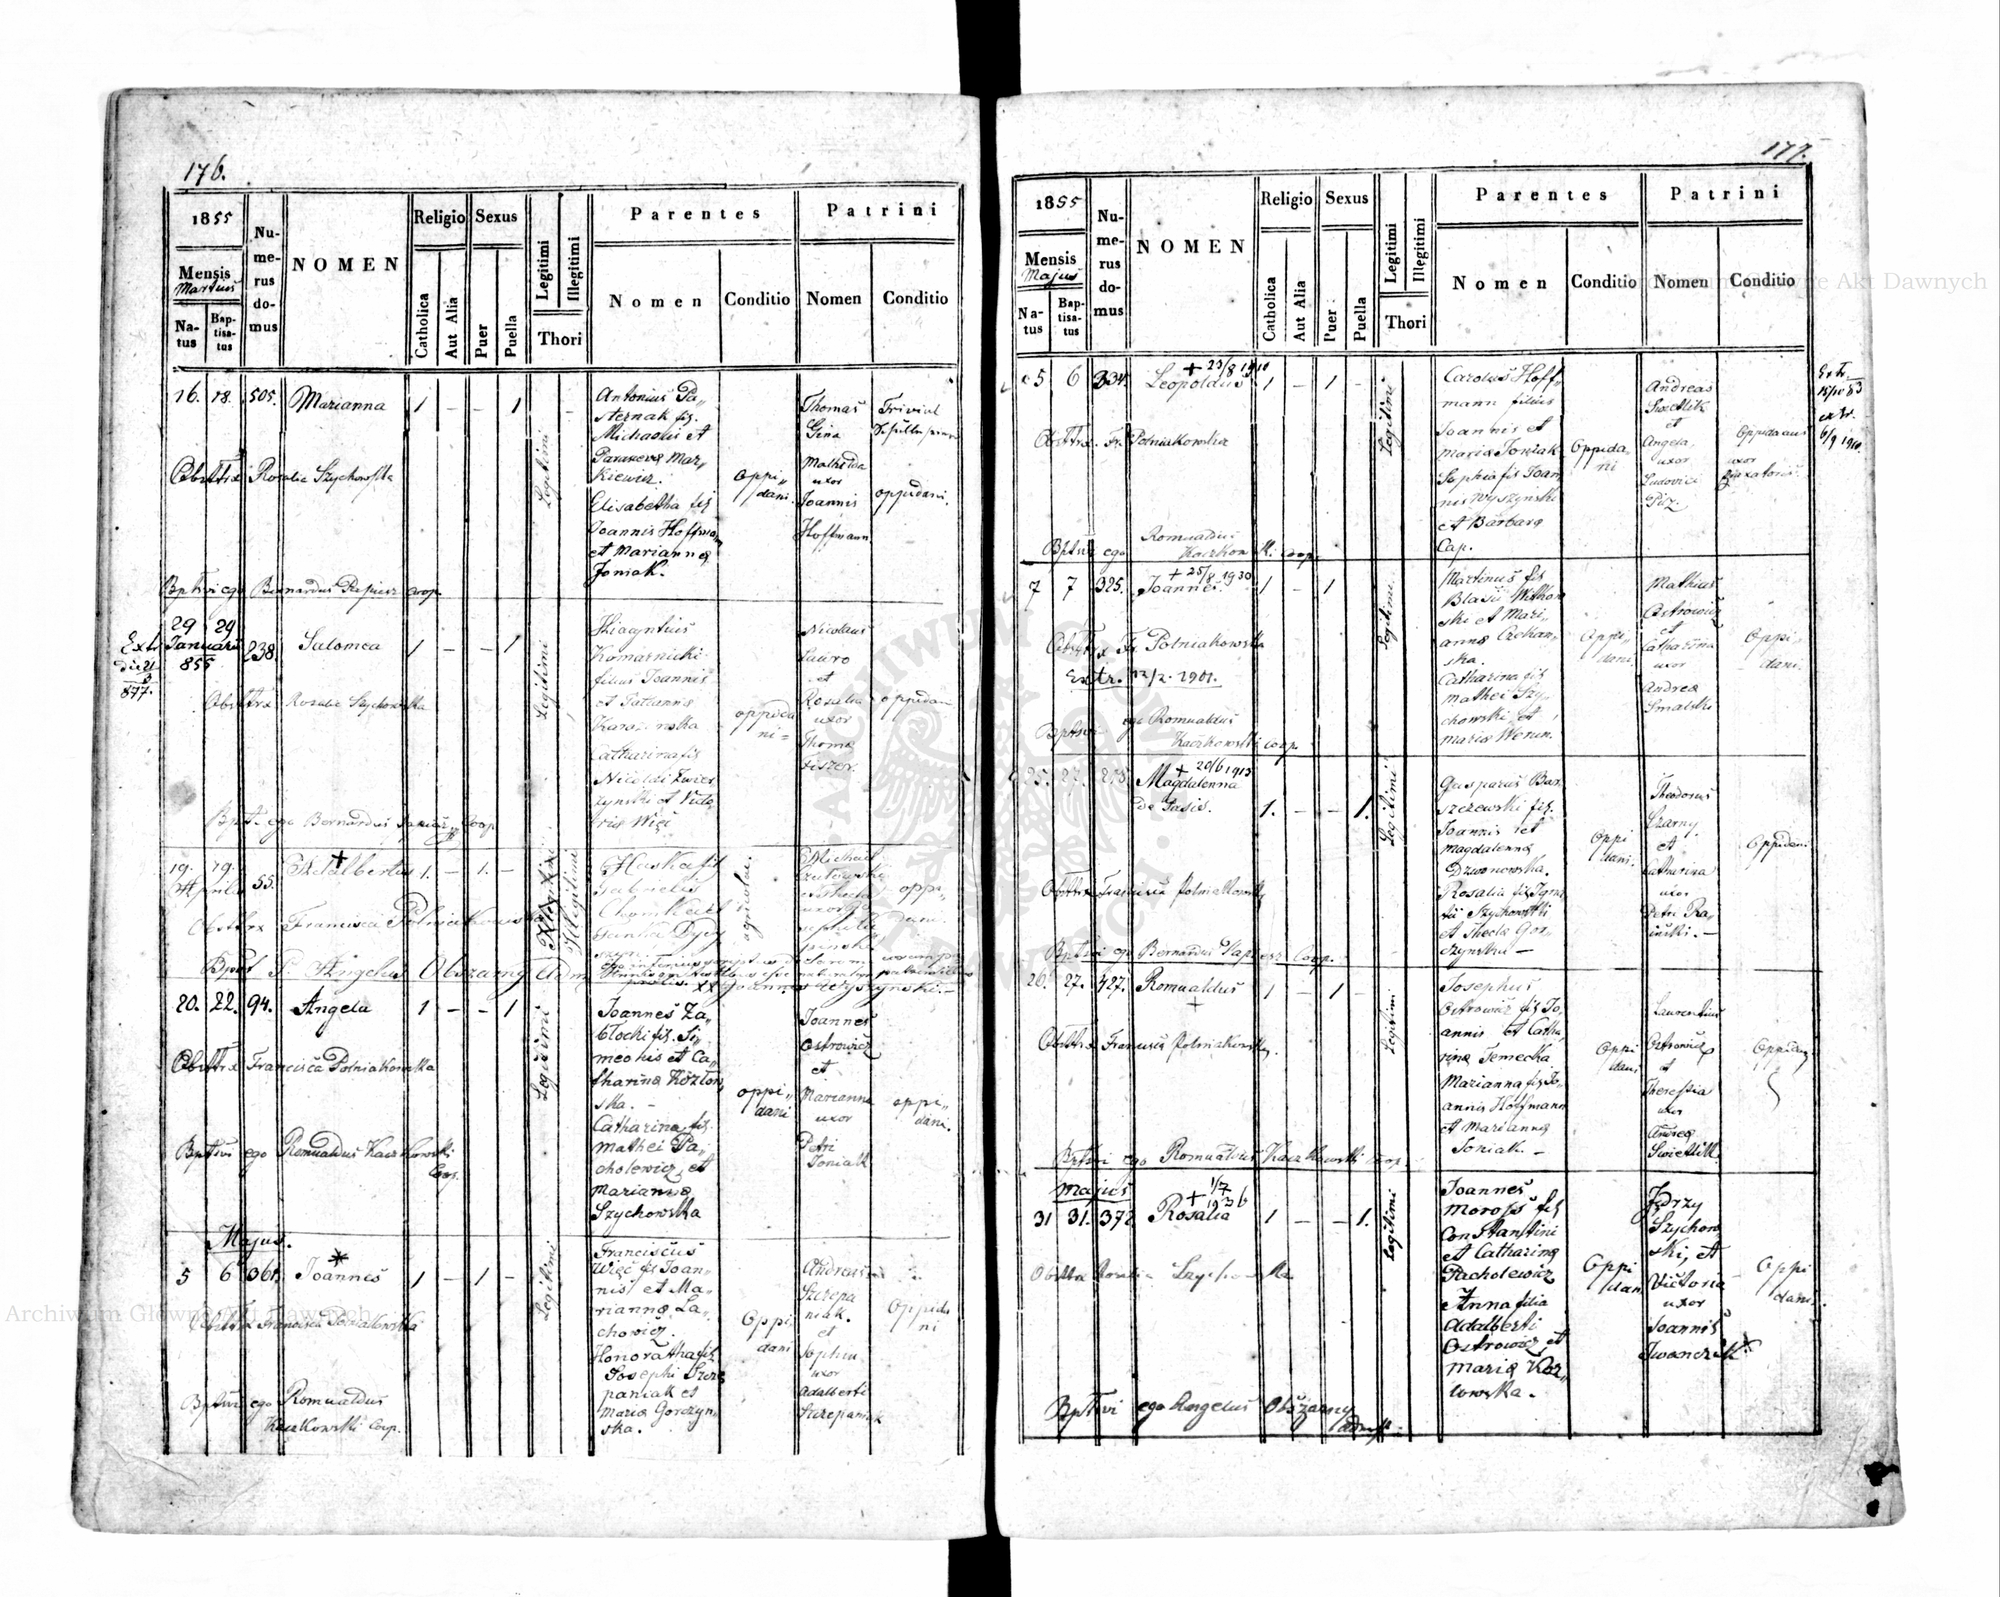 176.
1855
Mensis
Martius
Natus
Baptisatus
Numerus domus
NOMEN
Religio
Catholica
Aut Alia
Sexus
Puer
Puella
Legitimi
Illegitimi
Thori
Parentes
Nomen
Conditio
Patrini
Nomen
Conditio
16. 18. 505. Marianna 1 - - 1
Legitimi
Antonius Pa„
sternak fil.
Michaelis et
Parasceva Mar„
kiewicz.
Elisabetha fil
Joannis Hoffman
et Marianna
Joniak.
Oppi„
dani.
Thomas
Gina
Mathilda
uxor
Joannis
Hoffmann
Trivial
oppidani.
Obsttrx Rosalia Szychowska
Bptsvi ego Bernardus coop.
29 29
Januarii
855
238. Salomea 1 - - 1
Extr
877.
Legitimi
Hiacynthus
Komarnicki
filius Joannis
et Tatianna
Catharina fil
Nicolai
oppida
ni=
Nicolaus
Lauro
et
Rosalia
uxor
Thoma
Fiszer.
oppidani
Obsttrx Rosalia Szychowska
Bpt. ego Bernardus coop
19. 19.
Aprilis
55. Adalbertus 1. - 1. -
Illegitimi
Haska fil
Gabrielis
agricolae.
Michael
oppi„
dani.
Obsttrx Francisca Polniakowska
Bpst P. Angelus Obszarny Adm
Joannes Wyszynski.
20. 22. 94. Angela 1 - - 1
Legitimi
Joannes Za„
błocki fil. Si„
meonis et Ca„
tharina Kozłow
ska. -
Catharina fil.
Mathei Pa„
cholewicz et
Marianna
Szychowska
oppi„
dani
Joannes
Ostrowicz
et
Marianna
uxor
Petri
Joniak
oppi„
dani.
Obsttrx Francisca Polniakowska
Bptsvi ego Romualdus Kaczkowski
Coop.
Majus.
5 6 361. Joannes 1 - 1 -
Legitimi
Franciscus
Więc fil Joan„
nis et Ma„
rianna La„
chowicz.
Honoratha fil
Josephi Szcze
paniak et
Maria Gorczyn„
ska.
Oppi
dani
Andreas
Szczepa
niak.
et
Sophia
uxor
Adalberti
Szczepaniak
Oppida
ni
Obsttrx Francisca Polniakowska
Bptsvi ego Romualdus
Kaczkowski Coop.
177.
1855
Mensis
Majus
Natus
Baptisatus
Numerus domus
NOMEN
Religio
Catholica
Aut Alia
Sexus
Puer
Puella
Legitimi
Illegitimi
Thori
Parentes
Nomen
Conditio
Patrini
Nomen
Conditio
+ 23/8 1910
5 6 334. Leopoldus 1 - 1 -
Legitimi
Carolus Hoff„
mann filius
Joannis et
Maria Joniak
Sophia fil Joan
nis Wyszynski
et Barbara
Cap.
Oppida„
ni
Andreas
Swietlik
et
Angela
uxor
Ludovici
Oppidanus
uxor
Extr.
extr.
6/9 1910
Obsttrx. Fr. Polniakowska
Bptsvi ego Romualdus
Kaczkowski coop
+ 25/8 1930
7 7 325. Joannes 1 - 1
Legitimi
Martinus fil
Blasii Witkow
ski et Mari„
anna Czekan„
ska.
Catharina fil
Mathei Szy„
chowski et
Maria Wenin.
Oppi„
dani
Mathias
Ostrowicz
et
Catharina
uxor
Andrea
Smalski
Oppi„
dani.
Obsttrx Fr. Polniakowska
Extr. 12/2. 1901.
Bptsvi ego Romualdus
Kaczkowski coop.
+ 20/6 1915
25. 27. 213 Magdalenna
de Pasis. 1. - - 1.
Legitimi
Gasparus Bar„
szczewski fil.
Joannis et
Magdalenna
Dzwonowska.
Rosalia fil Igna
tii Szychowski
et Thecla Gor„
czynska -
Oppi
dani.
Theodorus
Czarny
et
Catharina
uxor
Petri Ra„
Oppidani
Obsttrx Francisca Polniakowska
Bptsvi ego Bernardus Coop.
26. 27. 427. Romualdus 1 - 1 -
+
Legitimi
Josephus
Ostrowicz fil Jo„
annis et Catha„
rina Jemecka
Marianna fil Jo„
annis Hoffmann
et Marianna
Joniak. -
Oppi
dani
Laurentius
Ostrowicz
et
Theressia
uxor
Andrea
Swietlik
Oppidani
Obsttrx Francisca Polniakowska
Bptsvi ego Romualdus Kaczkowski Coop.
Majus
+ 1/7
1936
31 31. 372 Rosalia 1 - - 1.
Legitimi
Joannes
Moross fil
Constantini
et Catharina
Pacholewicz
Anna filia
Adalberti
Ostrowicz et
Maria Koz„
lowska.
Oppi
dani
Jędrzy
Szychow
ski, et
Victoria
uxor
Joannis
Iwanczyk
Oppi
dani.
Obsttrx Rosalia Szychowska
Bptsvi ego Angelus Obszarny
Adm.
Archiwum Główne Akt Dawnych
Archiwum Główne Akt Dawnych